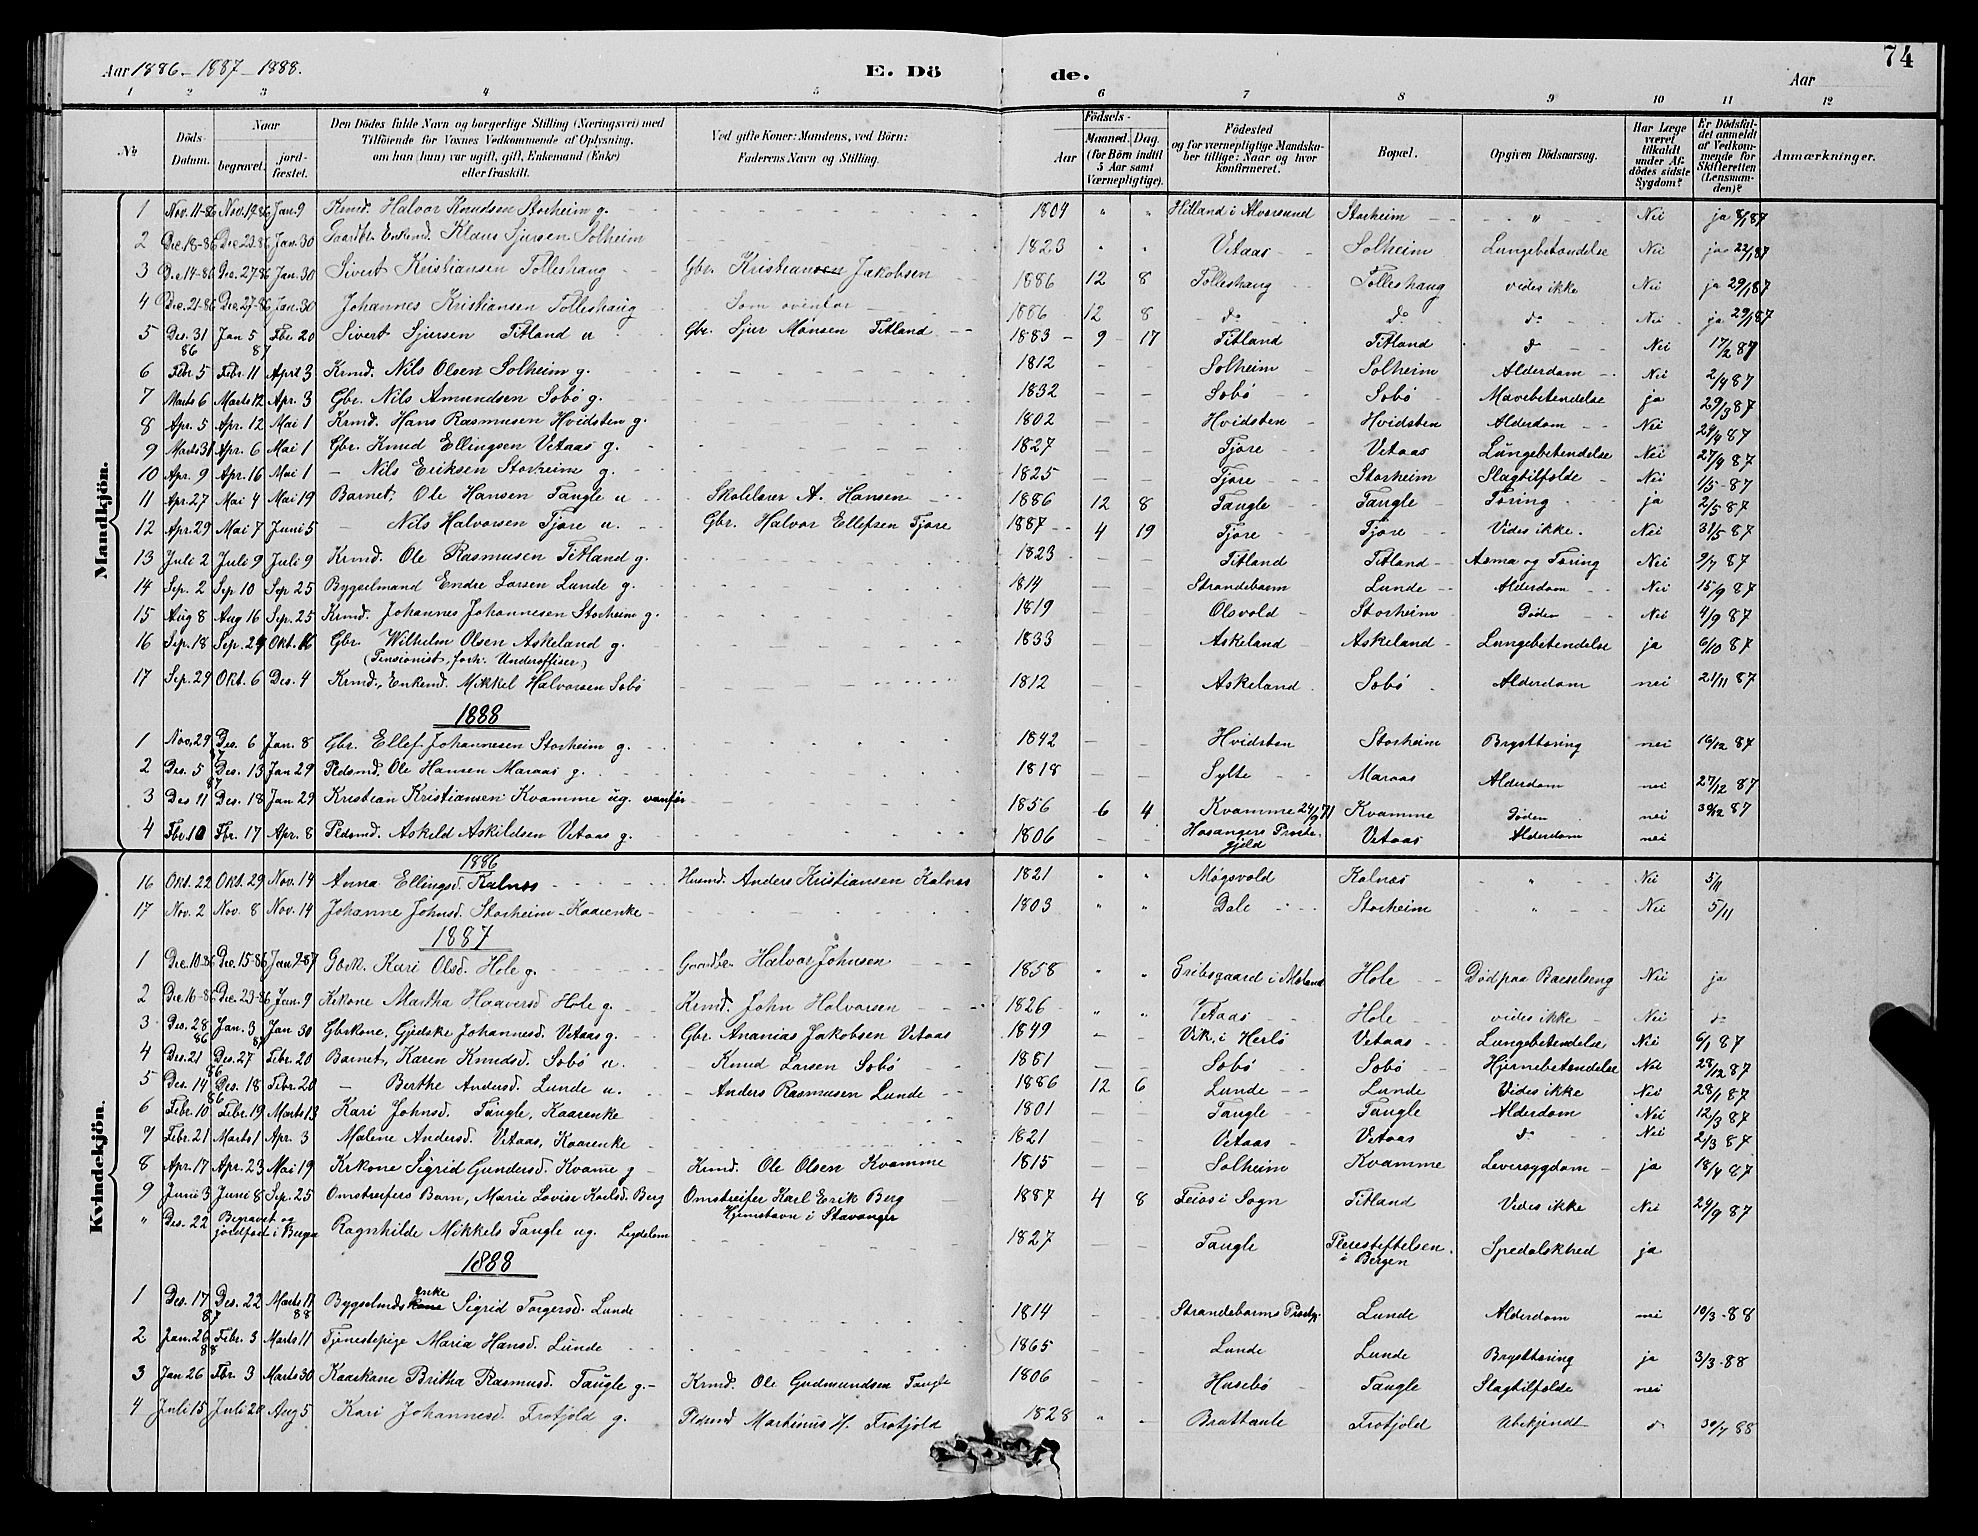 74
Aar 1886 - 1887 - 1888. E. Dö de. Aar
1 2 3 4 5 6 7 8 9 10 11 12
№ Döds-Datum. Naar begravet. jordfæstet. Den Dödes fulde Navn og borgerlige Stilling (Næringsvei) med Tilföiende for Voxnes Vedkommende af Oplysning, om han (hun) var ugift, gift, Enkemand (Enke) eller fraskilt. Ved gifte Koner: Mandens, ved Börn: Faderens Navn og Stilling. Födsels- Aar Maaned. Dag. (for Börn indtil 5 Aar samt Værnepligtige). Födested og for værnepligtige Mandskaber tillige: Naar og hvor konfirmeret. Bopæl. Opgiven Dödsaarsag. Har Læge været tilkaldt under Afdödes sidste Sygdom? Er Dödsfaldet anmeldt af Vedkommende for Skifteretten (Lensmanden)? Anmærkninger.
Mandkjön.
1 Nov. 11-86 Nov. 19-86 Jan. 9 Krmd. Halvor Knudsen Storheim g. 1804 " " Hilland i Alversund Storheim " Nei ja 8/1 87
2 Dec 18-86 Dec. 23-86 Jan. 30 Gaardbr. Enkemd. Klaus Sjursen Solheim 1823 " " Vetaas Solheim Lungebetændelse Nei ja 22/1 87
3 Dec 14-86 Dec. 27-86 Jan. 30 Sivert Kristiansen Tolleshaug Gbr. Kristian Jakobsen 1886 12 8 Tolleshaug Tolleshaug vides ikke Nei ja 29/1 87
4 Dec. 21-86 Dec. 27-86 Jan. 30 Johannes Kristiansen Tolleshaug Som ovenfor 1886 12 8 do do do Nei ja 29/1 87
5 Des. 31 86 Jan 5 87 Fbr. 20 Sivert Sjursen Titland u Gbr. Sjur Monsen Titland 1883 9 17 Titland Titland do Nei 17/2 87
6 Febr. 5 Febr. 11 April 3 Krmd. Nils Olsen Solheim g. 1812 Solheim Solheim Alderdom Nei 2/4 87
7 Marts 6 Marts 12 Apr. 3 Gbr. Nils Amundsen Sobö g. 1832 Sobö Sobö Mavebetendelse ja 29/3 87
8 Apr. 5 Apr. 12 Mai 1 Krmd. Hans Rasmusen Hvidsten g. 1802 Hvidsten Hvidsten Alderdom Nei 24/4 87
9 Marts 31 Apr. 6 Mai 1 Gbr. Knud Ellingsen Vetaas g. 1827 Fjore Vetaas Lungebetendelse Nei 27/4 87
10 Apr. 9 Apr. 16 Mai 1 - Nils Eriksen Storheim g. 1825 Fjore Storheim Slagtilfælde Nei 1/5-87
11 Apr. 27 Mai 4 Mai 19 Barnet, Ole Hansen Tangle u Skolelærer A. Hansen 1886 12 8 Tangle Tangle Tæring ja 2/5 87
12 Apr. 29 Mai 7 Juni 5 - Nils Halvorsen Fjore u. Gbr. Halvor Ellefsen Fjore 1887 4 19 Fjore Fjore Vides ikke. Nei 31/5 87
13 Juli 2 Juli 9 Juli 9 Krmd. Ole Rasmusen Titland g. 1823 Titland Titland Asma og Tæring Nei 9/7 87
14 Sep. 2 Sep 10 Sep 25 Bygselmand Endre Larsen Lunde g. 1814 Strandebarm Lunde Alderdom Nei 15/9 87
15 Aug 8 Aug 16 Sep. 25 Krmd. Johannes Johannesen Storheim g. 1819 Olsvold Storheim do Nei 4/9 87
16 Sep. 18 Sep. 24 Okt. 16 Gbr. Wilhelm Olsen Askeland g. (Pensionist, forh. Underoffiser) 1833 Askeland Askeland Lungebetendelse ja 6/10 87
17 Sep. 29 Okt. 6 Des. 4 Krmd., Enkemd. Mikkel Halvorsen Sobö 1812 Askeland Sobö Alderdom nei 21/11 87
1888
1 Nov. 29 Des. 6 Jan. 8 Gbr. Ellef Johannesen Storheim g. 1842 Hvidsten Storheim Brysttæring nei 10/12 87
2 Des. 5 87 Des. 13 Jan 29 Pldsmd. Ole Hansen Maraas g. 1818 Sylte Maraas Alderdom nei 27/12 87
3 Des 11 Des. 18 Jan 29 Kristian Kristiansen Kvamme ug. vanför 1856 6 4 Kvamme 24/9 71 Kvamme nei 30/12 87
4 Fbr. 10 Fbr. 17 Apr. 8 Pldsmd. Askeld Askildsen Vetaas g. 1806 Hosangers Prestegjeld Vetaas Alderdom nei
Kvindekjön.
1886
16 Okt. 22 Okt. 29 Nov. 14 Anna Ellingsd. Kalnæs Husmd. Anders Kristiansen Kalnæs 1821 " " Mögsvold Kalnæs " Nei 5/11
17 Nov. 2 Nov. 8 Nov. 14 Johanne Johnsd. Storheim Kaarenke 1803 " " Dale Storheim " Nei 5/11
1887
1 Dec. 10-86 Dec. 15-86 Jan 9-87 Gbrk. Kari Olsd. Hole g. Gaardbr. Halvor Johnsen 1858 " " Eribsgaard i Moland Hole Död paa Barselseng Nei ja
2 Dec 16-86 Dec. 23-86 Jan. 9 Krkone Martha Haaversd Hole g. Krmd. John Halvorsen 1826 " " Vetaas Hole vides ikke Nei do
3 Des. 28 86 Jan. 3 87 Jan 30 Gbrkone, Gjedske Johannesd. Vetaas g. Gbr. Ananias Jakobsen Vetaas 1849 Vik i Herlö Vetaas Lungebetendelse Nei 6/1 87
4 Des. 21 86 Des. 27 Febr. 20 Barnet, Karen Knudsd. Sobö u. - Knud Larsen Sobö 1881 Sobö Sobö Hjernebetendelse Nei 28/12 87
5 Des. 14 86 Des. 18 Febr. 20 - Berthe Andersd. Lunde u. - Anders Rasmusen Lunde 1886 12 6 Lunde Lunde Vides ikke Nei 28/1 87
6 Febr. 10 Febr. 19 Marts 13 Kari Johnsd. Tangle, Kaarenke 1801 Tangle Tangle Alderdom Nei 12/3 87
7 Febr. 21 Marts 1 Apr. 3 Malene Andersd. Vetaas, Kaarenke 1821 Vetaas Vetaas do Nei 2/3 87
8 Apr. 17 Apr. 23 Mai 19 Krkone Sigrid Gundersd. Kvame g Krmd. Ole Olsen Kvamme 1815 Solheim Kvamme Leversygdom ja 18/4 87
9 Juni 3 Juni 8 Sep. 25 Omstreifers Barn, Marie Lovise Karlsd. Berg Omstreifer Karl Eerik Berg Hjemstavn i Stavanger 1887 4 8 Feios i Sogn Titland Vides ikke Nei 24/9 87
" Des. 22 Begravet og jordfæst i Bergen Ragnhilde Mikkels Tangle ug. Legdelem 1827 Tangle Pleiestiftelsen i Bergen Spedalskhed ja
1888
1 Des. 17 87 Des. 22 Marts 11 88 Bygselmdskone enke Sigrid Torgersd. Lunde 1814 Strandebarms Prestgj. Lunde Alderdom nei 10/3-88
2 Jan. 26 88 Febr. 3 Marts 11 Tjenestepige Maria Hansd. Lunde 1865 Lunde Lunde Brysttæring ja 3/3-88
3 Jan 26 Fbr. 3 Marts 30 Kaarkone Britha Rasmusd. Tangle g. Krmd. Ole Gudmundsen Tangle 1806 Husebö Tangle Slagtilfælde nei
4 Juli 15 Juli 20 Aug 5 Kari Johannesd. Frotjold g. Pldsmd Martinus H. Frotjold 1828 " " Brattaule Frotjold Ubekjendt do 30/7 88